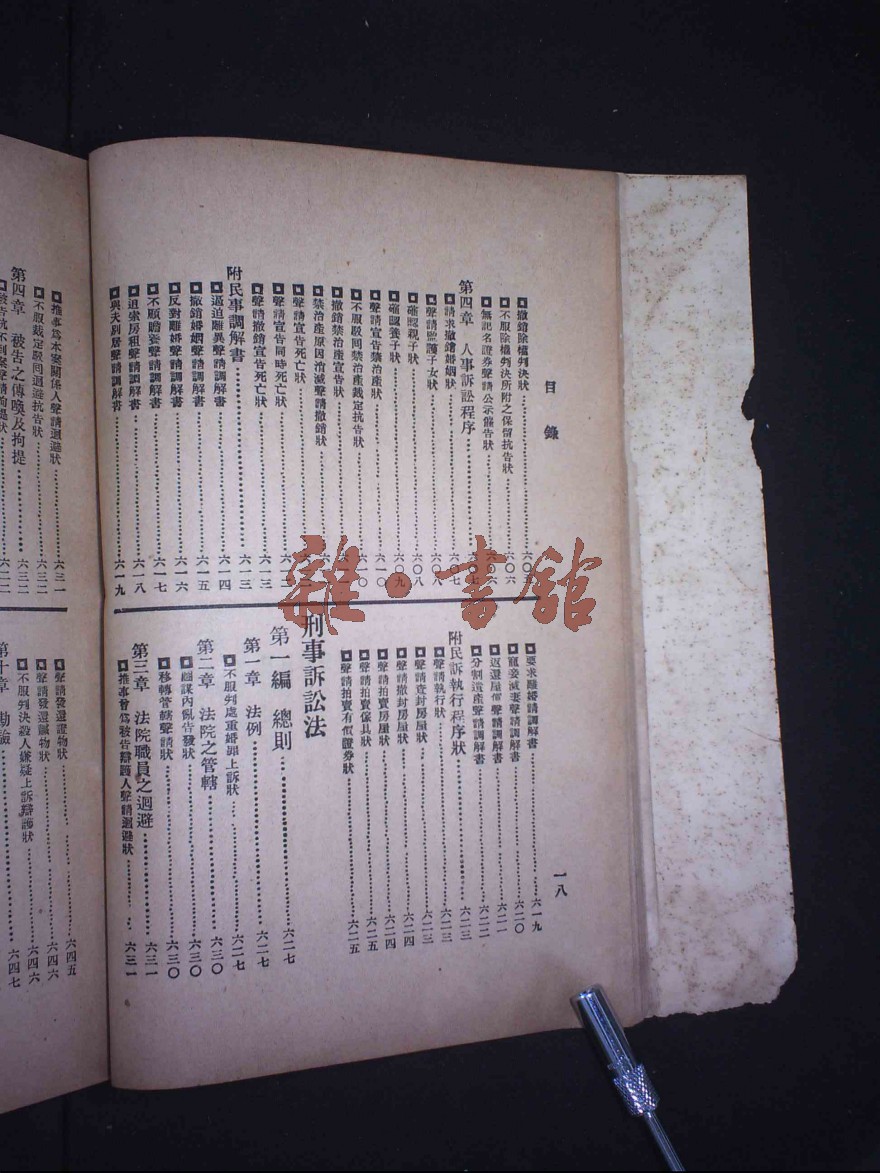 目錄
一八
撤銷除權判決狀
不服除權判決所附之保留抗告狀 六〇六
無記名證券聲請公示催告狀 六〇六
第四章 人事訴訟程序 六〇七
請求撤銷婚姻狀 六〇七
聲請監護子女狀 六〇八
確認親子狀 六〇八
確認養子狀 六〇九
聲請宣告禁治產狀 六一〇
不服駁回禁治產裁定抗告狀
撤銷禁治產宣告狀
禁治產原因消滅聲請撤銷狀
聲請宣告死亡狀
聲請宣告同時死亡狀
聲請撤銷宣告死亡狀 六一三
附民事調解書 六一三
逼迫離異聲請調解書 六一四
撤銷婚姻聲請調解書 六一五
反對離婚聲請調解書 六一六
不願贍妾聲請調解書 六一七
追索房租聲請調解書 六一八
與夫別居聲請調解書 六一九
要求離婚請調解書 六一九
寵妾滅妻聲請調解書 六二〇
返還屋價聲請調解書 六二一
分割遺產聲請調解書 六二二
附民訴執行程序狀 六二三
聲請執行狀 六二三
聲請查封房屋狀 六二三
聲請撤封房屋狀 六二四
聲請拍賣房屋狀 六二四
聲請拍賣傢具狀 六二五
聲請拍賣有價證券狀 六二五
刑事訴訟法
第一編 總則 六二七
第一章 法例 六二七
不服判處重婚罪上訴狀 六二七
第二章 法院之管轄 六三〇
幽謀內亂告發狀 六三〇
移轉管轄聲請狀 六三〇
第三章 法院職員之迴避 六三一
推事曾為被告辯護人聲請迴避狀 六三一
推事為本案關係人聲請迴避狀 六三一
不服裁定駁回迴避抗告狀 六三二
第四章 被告之傳喚及拘提 六三二
聲請發還證物狀 六四五
聲請發還贓物狀 六四六
不服判決殺人嫌疑上訴辯訴狀 六四六
第十章 勘驗 六四七
雜·書館